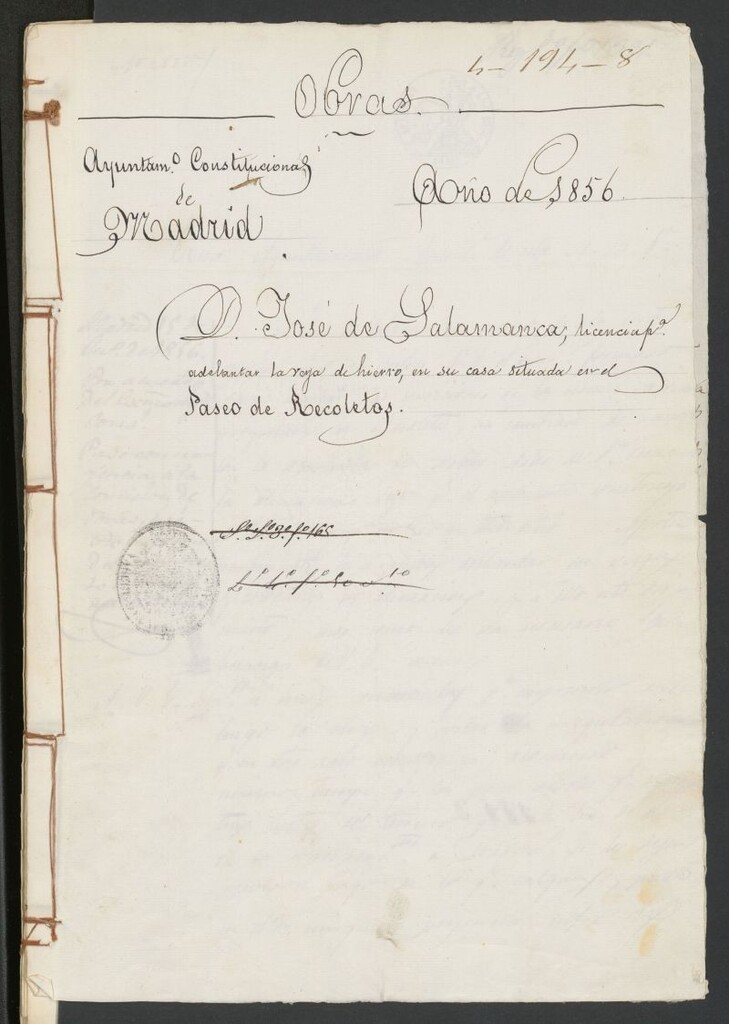 4-194-8
Obras.
Ayuntam.º Constitucional
de
Madrid
Año de 1856.
D. José de Salamanca, licencia p.ª
adelantar la reja de hierro, en su casa situada en el
Paseo de Recoletos.